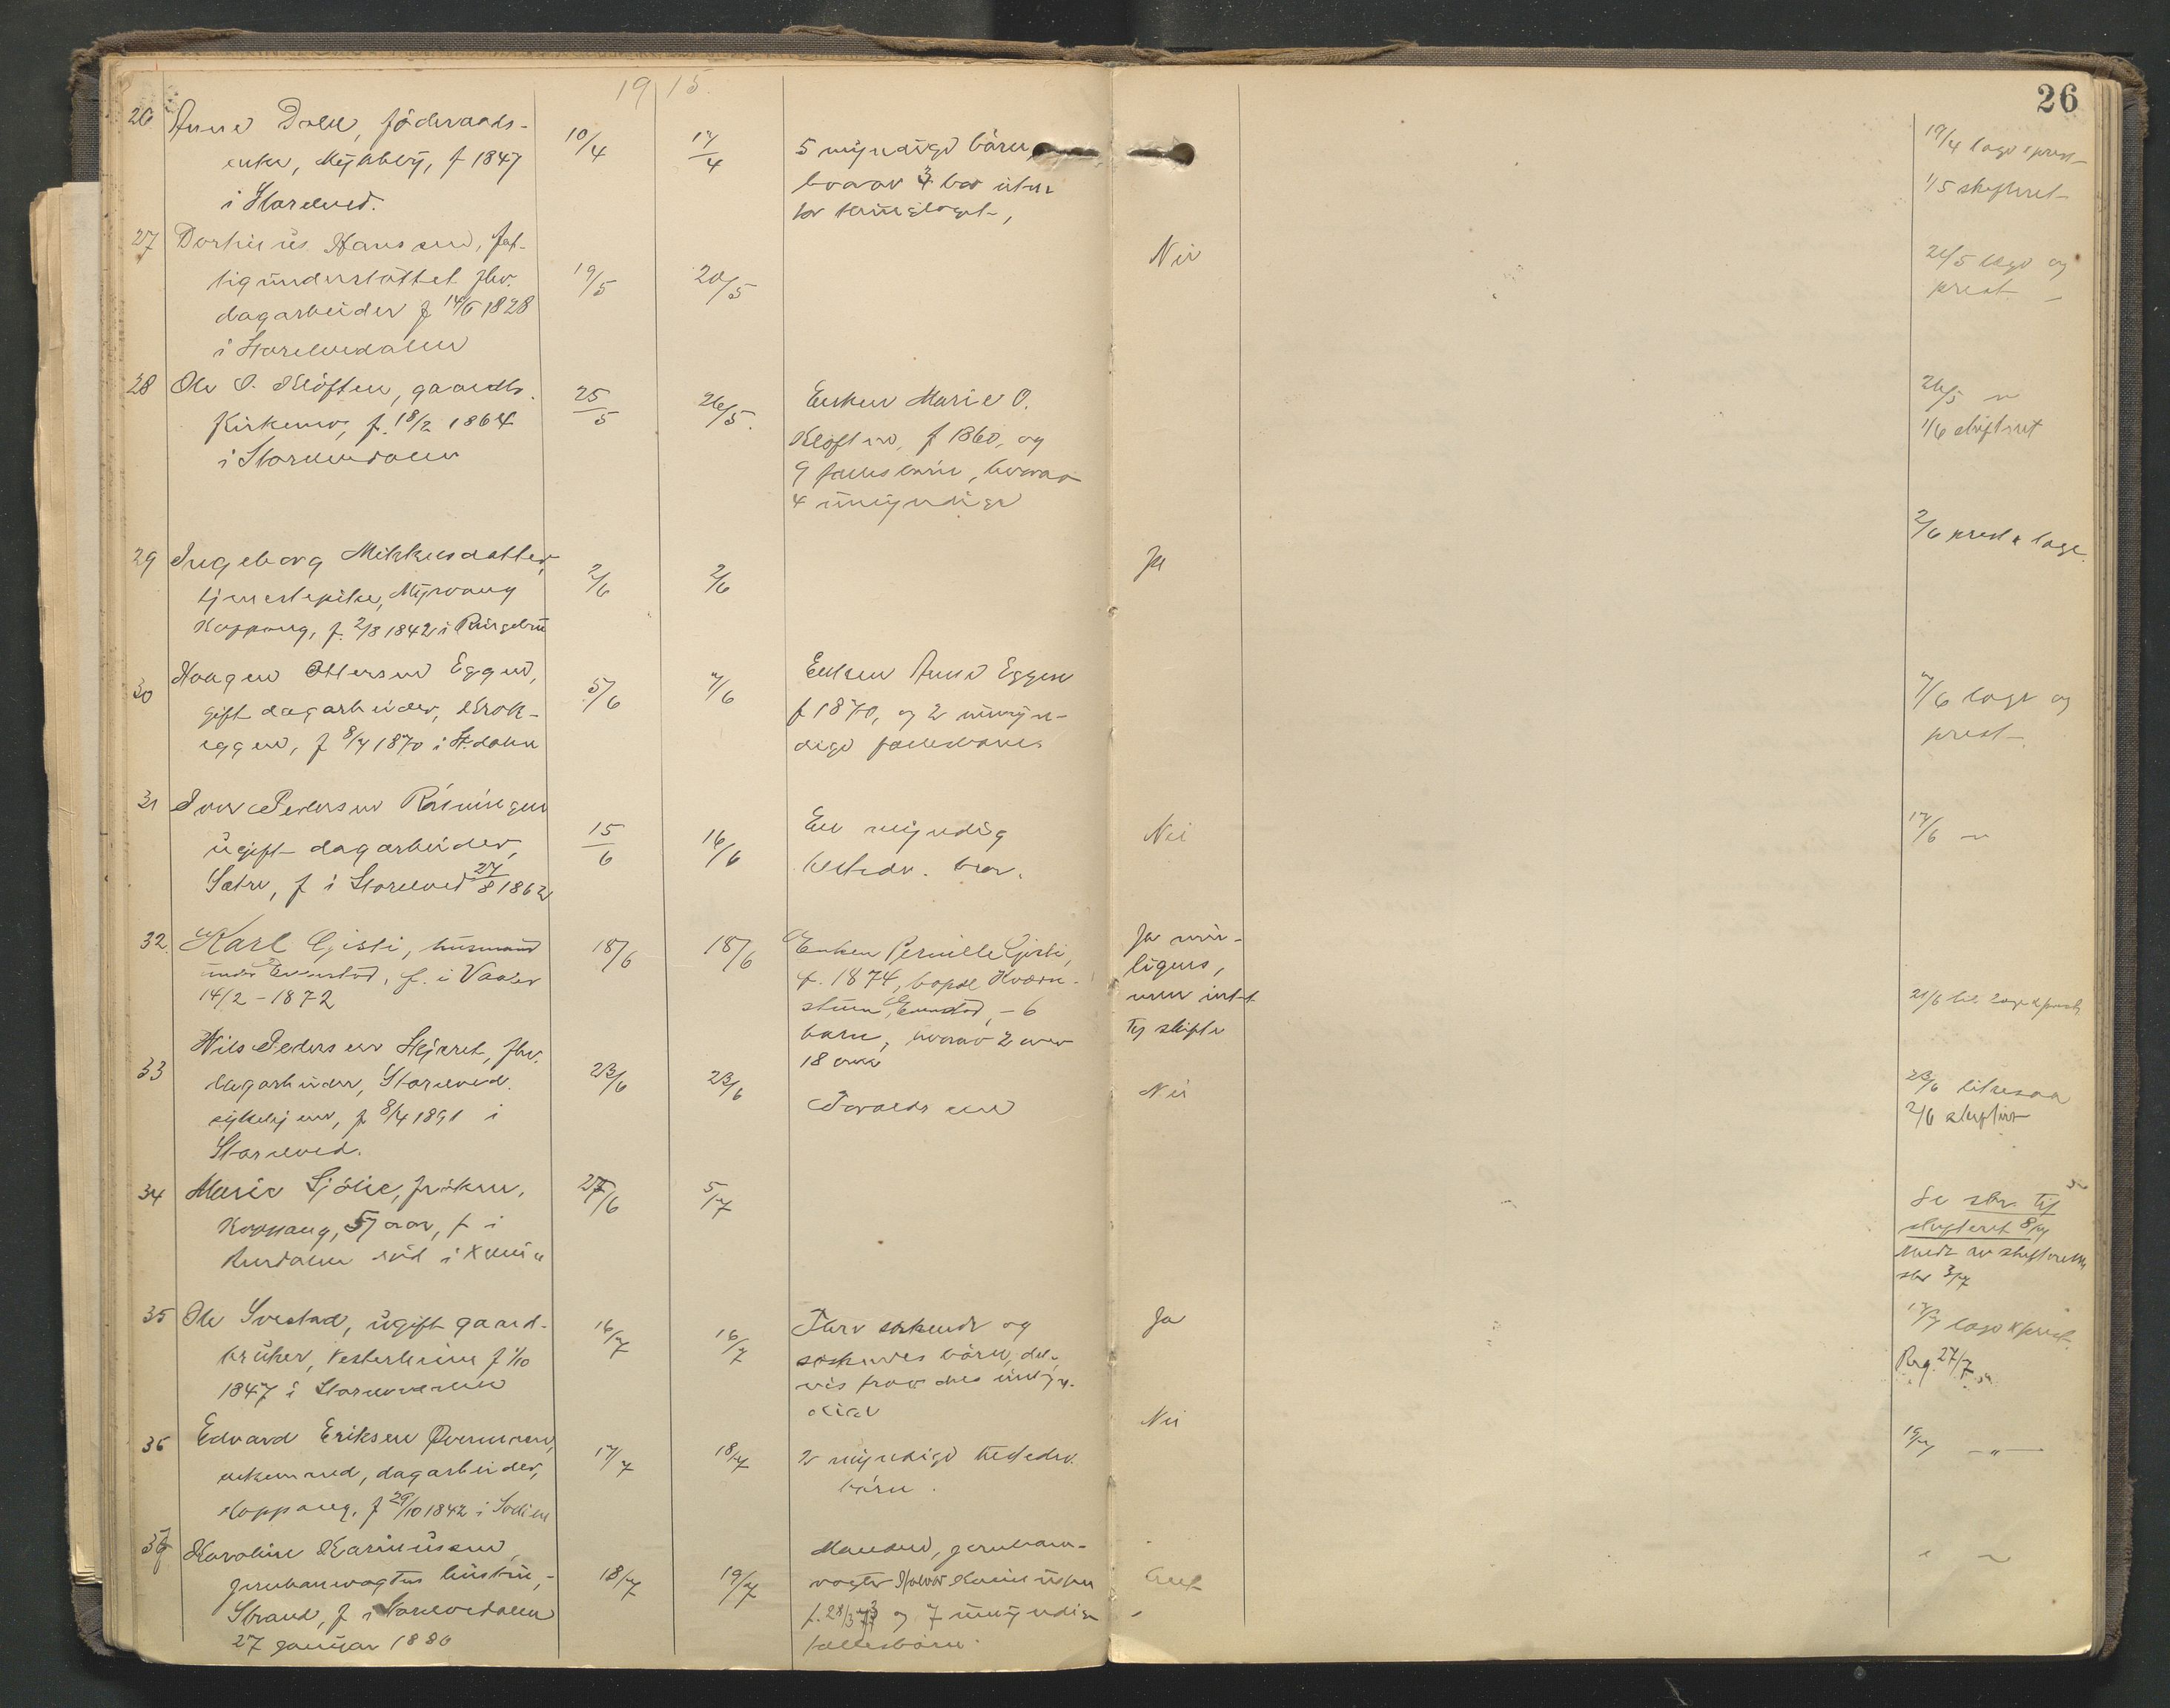 26
1915.
26 Anne Dalen, föderaads-
enke, Myhlbÿ, f 1847
i Storelved.
10/4 17/4
5 mÿndige börn,
hvorav 3 bor uten
for tinglaget,
17/4 lagv. & prest
1/5 skifteret
27 Dortheus Hansen, fat-
tigünderstöttet fhv.
dagarbeider f 14/6 1828
i Storelvedalen
19/5 20/5
Nei
21/5 lagv og
prest
28 Ole O. Klöften, gaardbr.
Kirkemo, f. 18/2 1864
i Storelvedalen
25/5 26/5.
Enken Marie O.
Kløften, f 1860, og
9 fællesbarn, hvorav
4 ümÿndige
26/5 "
1/6 skifteret
29 Ingeborg Mikkelsdatter,
tjenestepike, Mÿrvang
Koppang, f. 2/8 1842 i Ringebu
2/6 2/6
Ja
2/6 prest & lagv.
30 Haagen Ottersen Eggen,
gift dagarbeider, Krok-
eggen, f 8/7 1870 i St.dalen
5/6 7/6
Enken Anne Eggen
f 1870, og 2 ümÿn-
dige fællesbarn
7/6 lagv og
prest
31 Iver Pedersen Röiningen
ügift dagarbeider,
Sætre, f i Storelved 27/8 1862
15/6 16/6
En mÿndig
helbror.
Nei
17/6 "
32. Karl Gjøsti, hüsmand
ünder Evenstad, f. i Vaaler
14/2 - 1872
18/6 18/6
Enken Pernille Gjøsti,
f. 1874, bopæl Kværn-
stuen, Evenstad, - 6
barn, hvorav 2 over
18 aar
Ja rime-
ligvis,
men intet
til skifte
21/6 lagv & prest
33 Nils Pedersen Stejaret, fhv.
dagarbeider, Storelved.
sykehjem, f 8/4 1891 i
Storelved.
23/6 23/6
Forældrene
Nei
23/6 likesaa
2/6 skifteret
34 Marie Sjölie, fröken,
Koppang, 57 aar, f i
Rendalen
27/6 5/7
Se skr. til
skifteret 8/7
Medt. av skifteretten
skr 3/7
35 Ole Evestad, ügift gaard-
brüker, Vesterheim f 1/10
1847 i Storelvedalen
16/7 16/7
Flere søskende og
søskendes börn, del-
vis ümÿn-
dige
Ja
17/7 lagv & prest.
Reg. 27/7
36 Edvard Eriksen Övermoen,
enkemand, dagarbeider,
Koppang, f 29/10 1842 i Sollien
17/7 18/7
2 mÿndige
börn.
Nei
19/7 - " -
37 Karoline Karinüssen,
jernbanevogters hüstrü,
Strand, f i Storelvedalen
27 janüar 1886
18/7 19/7
Manden, jernbane-
vogter Halvor Karinüssen
f. 28/3 73 og 7 ümÿndige
fællesbörn.
Ant
" "